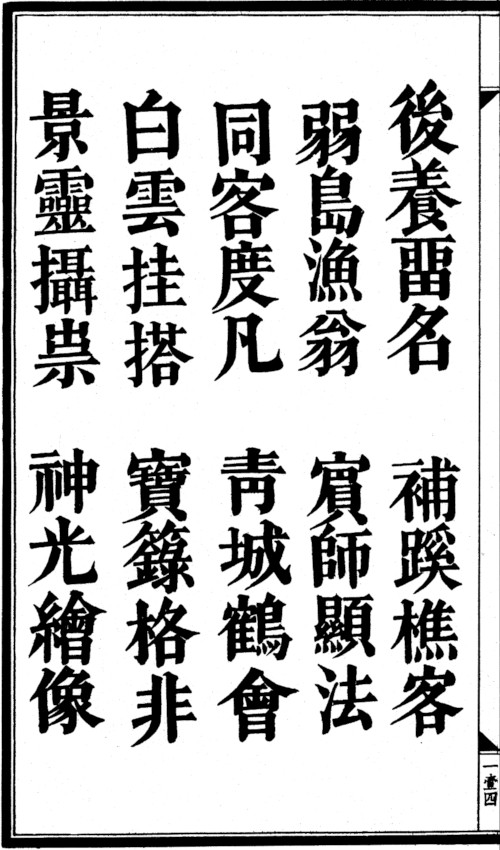 後養畱名 補蹊樵客
弱島漁翁 賔師顯法
同客度凡 靑城鶴會
白雲挂搭 寶籙格非
景靈攝祟 神光繪像
一壹四